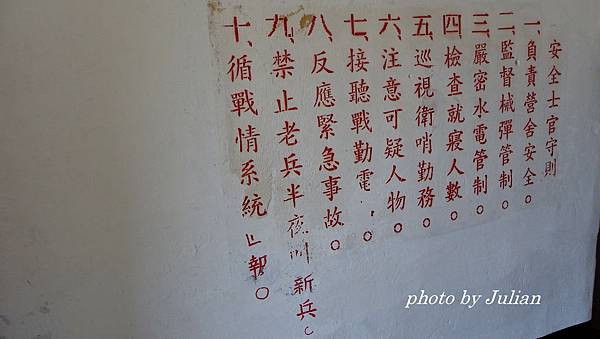 安全士官守則
一、負責營舍安全。
二、監督械彈管制。
三、嚴密水電管制。
四、檢查就寢人數。
五、巡視衛哨勤務。
六、注意可疑人物。
七、接聽戰勤電。
八、反應緊急事故。
九、禁止老兵半夜叫新兵。
十、循戰情系統上報。
photo by Julian